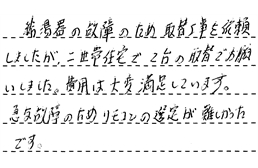 給湯器の故障のため取替工事を依頼
しましたが、二世帯住宅で2台の取替でお願
いしました。費用は大変満足しています。
急な故障のためリモコンの選定が難しかった
です。